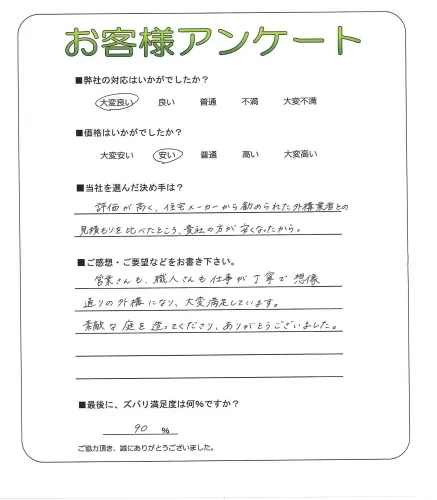 お客様アンケート
■弊社の対応はいかがでしたか？
大変良い 良い 普通 不満 大変不満
■価格はいかがでしたか？
大変安い 安い 普通 高い 大変高い
■当社を選んだ決め手は？
評価が高く、住宅メーカーから勧められた外構業者との
見積もりを比べたところ、貴社の方が安くなったから。
■ご感想・ご要望などをお書き下さい。
営業さんも、職人さんも仕事が丁寧で想像
通りの外構になり、大変満足しています。
素敵な庭を造ってくださり、ありがとうございました。
■最後に、ズバリ満足度は何%ですか？
90 %
ご協力頂き、誠にありがとうございました。